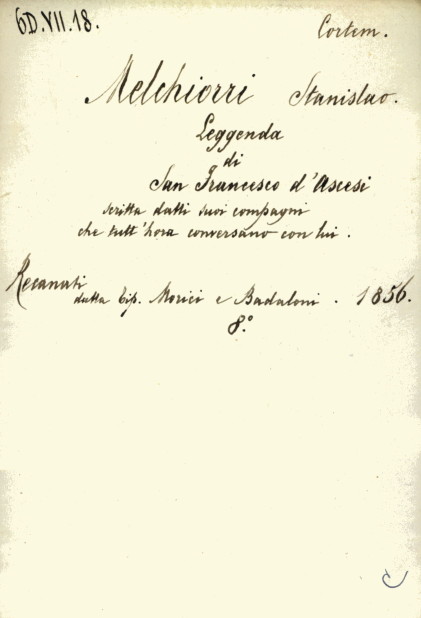 6D.VII.18.
Cortem.
Melchiorri Stanislao.
Leggenda
di
San Francesco d'Ascesi
scritta dalli suoi compagni
che tutt'hora conversano con lui.
Recanati
dalla tip. Morici e Badaloni. 1856.
8.°